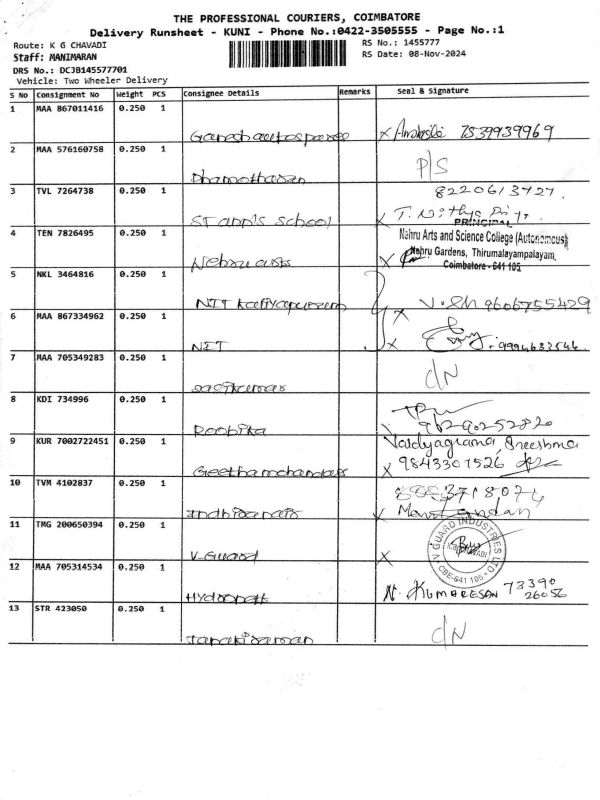 THE PROFESSIONAL COURIERS, COIMBATORE
Delivery Runsheet - KUNI - Phone No.:0422-3505555 - Page No.:1
Route: K G CHAVADI
RS No.: 1455777
Staff: MANIMARAN
RS Date: 08-Nov-2024
DRS No.: DCJB145577701
Vehicle: Two Wheeler Delivery
S No Consignment No Weight PCS Consignee Details Remarks Seal & Signature
1 MAA 867011416 0.250 1
Ganesh autospares X 7539939969
2 MAA 576160758 0.250 1 P/S
Dhamotharan
3 TVL 7264738 0.250 1 8220613727.
ST ann's school X T. Nithya Priya
4 TEN 7826495 0.250 1 PRINCIPAL
Nehru Arts and Science College (Autonomous)
Nehru Gardens, Thirumalayampalayam,
Nehru arts X Coimbatore - 641 105
5 NKL 3464816 0.250 1
NIT Kaliyapuram X 9606755429
6 MAA 867334962 0.250 1
NIT X 9994633546
7 MAA 705349283 0.250 1 d/N
Sasikumar
8 KDI 734996 0.250 1
Roobika X 9629025282
9 KUR 7002722451 0.250 1 Vaidyagrama, Greeshma
Geethamchandars X 9843307526
10 TVM 4102837 0.250 1 3718074
X Manikandan
11 TMG 200650394 0.250 1 V GUARD INDUSTRIES LTD
K.G. CHAVADI
V-Guard X CBE-641 105
12 MAA 705314534 0.250 1
N. KUMARESAN 73390
26056
13 STR 423050 0.250 1 d/N
Janakiraman